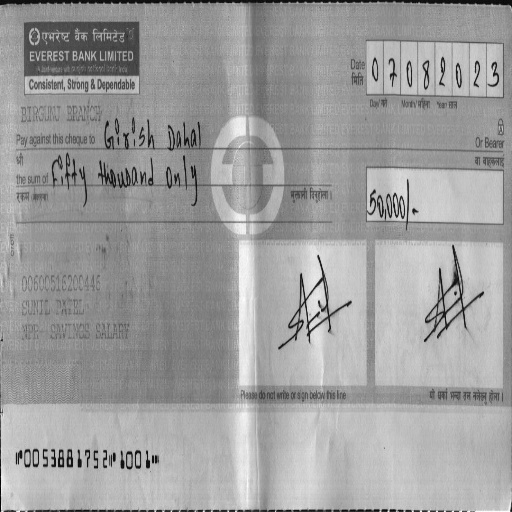 एभरेष्ट बैंक लिमिटेड
EVEREST BANK LIMITED
Consistent, Strong & Dependable
Date
मिति
0 7 0 8 2 0 2 3
Day/ गते Month/ महिना Year/ साल
BIRGUNJ BRANCH
Pay against this cheque to Girish Dahal
Or Bearer
श्री
वा वाहकलाई
the sum of Fifty thousand only
रकम
50,000/-
00600516200446
SUNIL PATEL
NPR SAVINGS SALARY
Please do not write or sign below this line
⑈0053881752⑈1001⑈